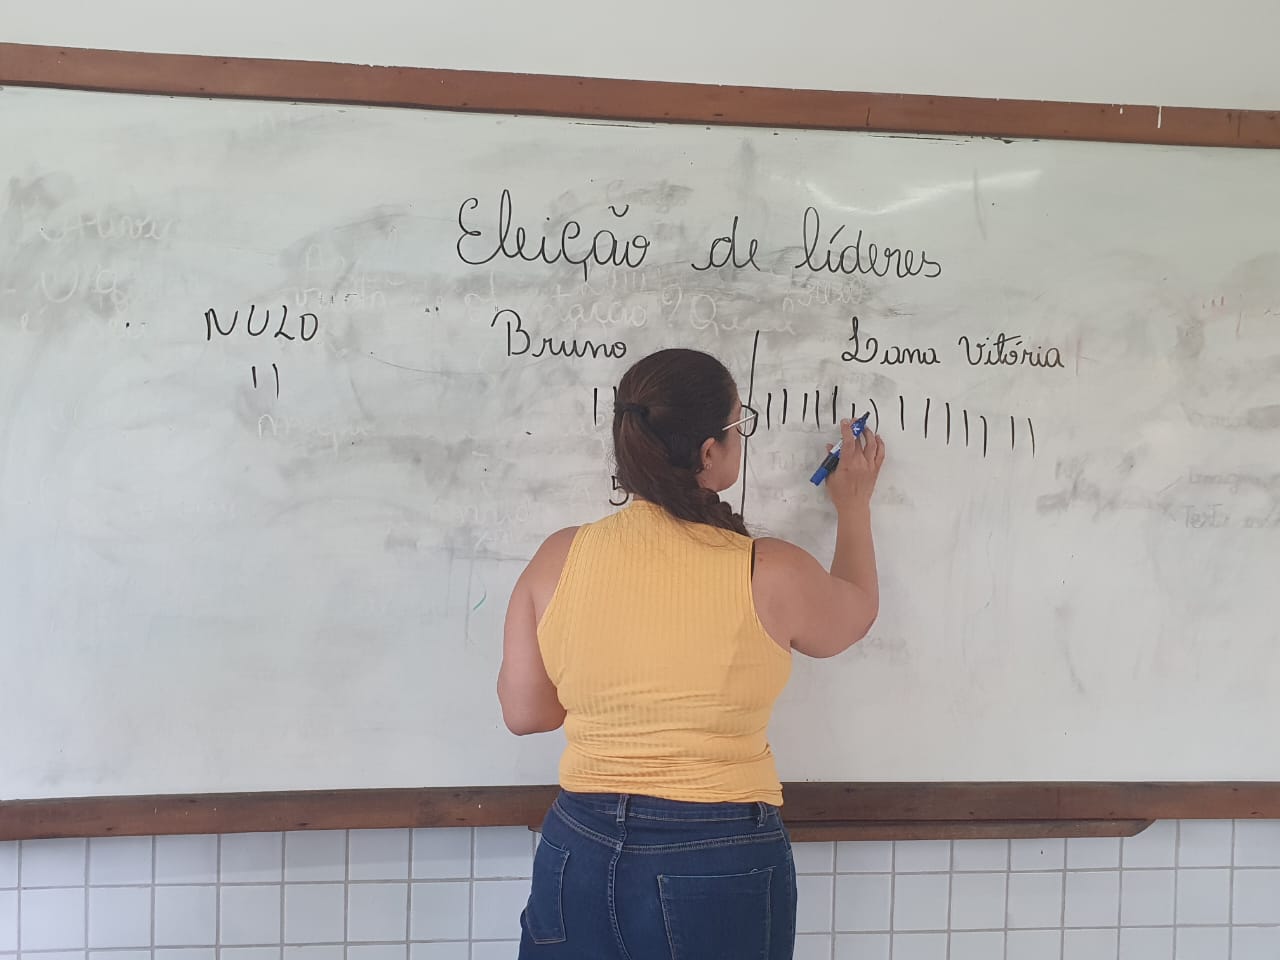 Eleição de líderes
NULO Bruno Lana Vitória
5